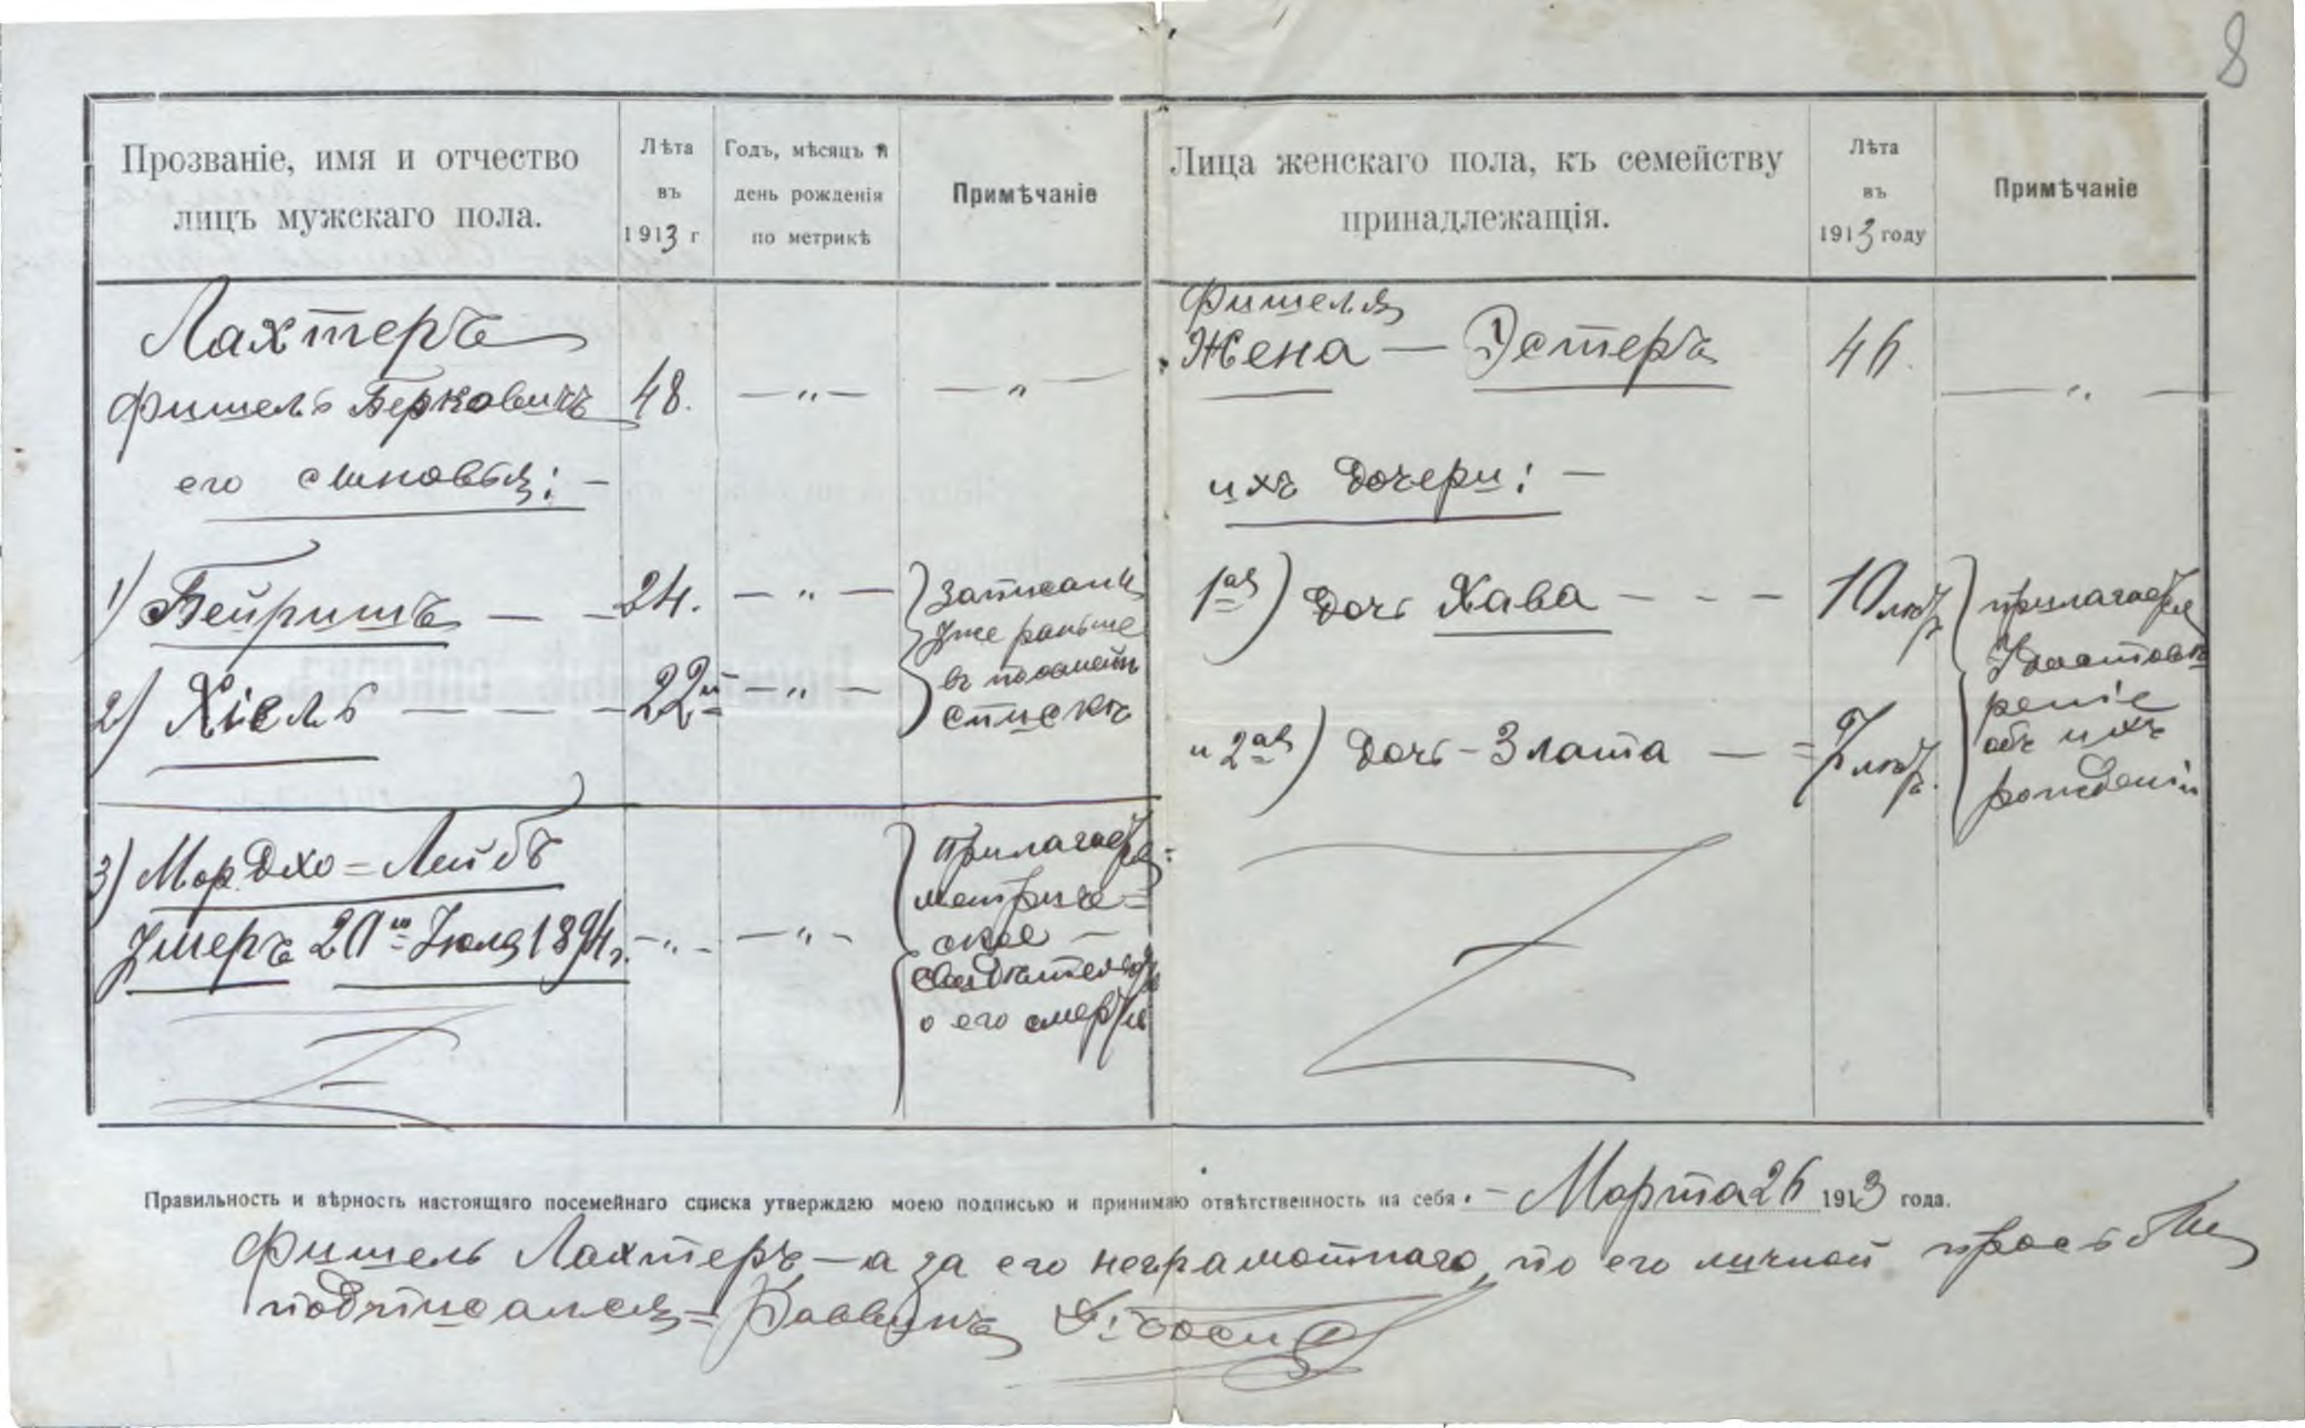 8
Прозваніе, имя и отчество
лицъ мужскаго пола.
Лѣта
въ
1913 г
Годъ, мѣсяцъ и
день рожденія
по метрикѣ
Примѣчаніе
Лица женскаго пола, къ семейству
принадлежащія.
Лѣта
въ
1913 году
Примѣчаніе
Лахтеръ
Фишель Берковичъ 48. — „ — — „ —
его сыновья: —
1) Бейришъ — — 24. — „ —
2) Хіель — — — 22 — „ —
Записаны
уже раньше
въ посемейн
спискѣ
3) Мордхо=Лейбъ
Умеръ 20го Іюля 1894 г. — „ — — „ —
Прилагается
метриче=
ское —
свидѣтельст
о его смерти
Фишеля
Жена — Эстеръ 46. — „ —
ихъ дочери: —
1ая) дочь Хава — — — 10 лѣтъ
и 2ая) дочь — Злата — = 7 лѣтъ.
прилагается
удостовѣ
реніе
объ ихъ
рожденіи
Правильность и вѣрность настоящаго посемейнаго списка утверждаю моею подписью и принимаю отвѣтственность на себя. — Марта 26 1913 года.
Фишель Лахтеръ — а за его неграмотнаго, по его личной просьбѣ
подписался =